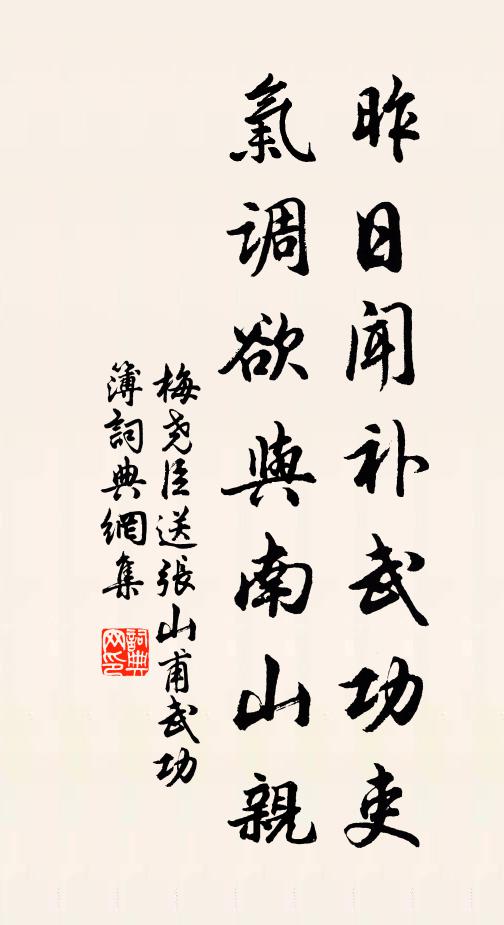 昨日闻补武功吏
氣调欲與南山親
梅尧臣送張山甫武功
簿詞典網集
詞典网印